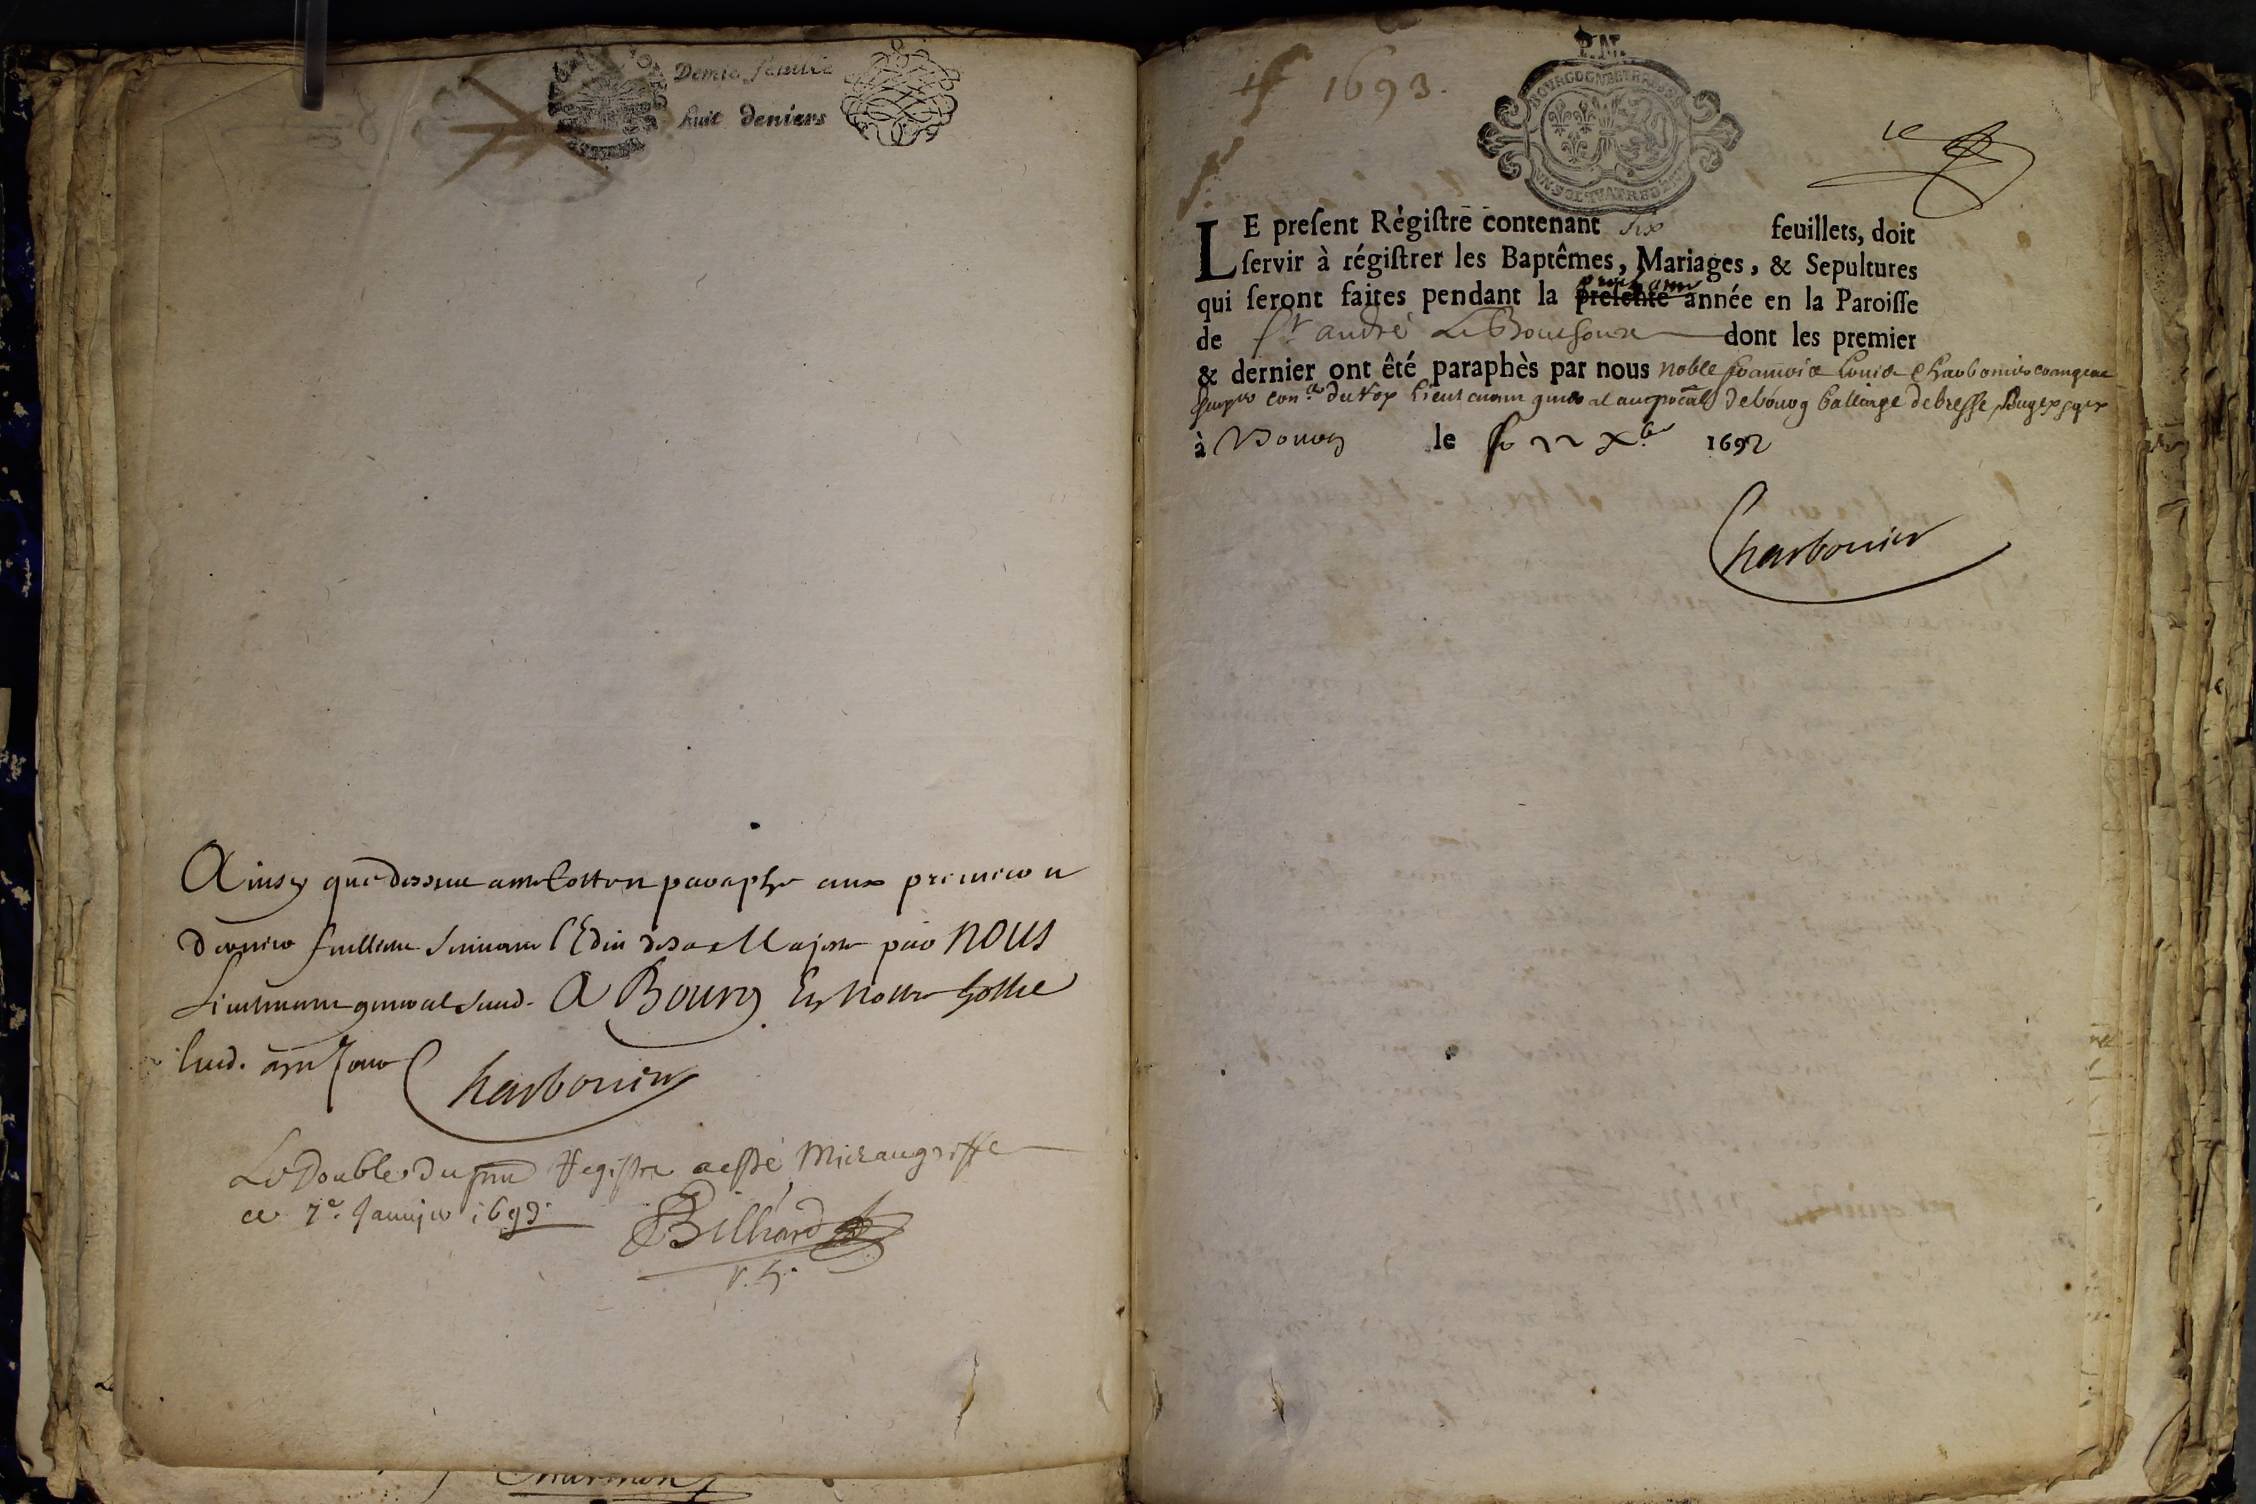 Demie feuille
huit deniers
Ainsy que dessus a esté cotté et paraphé aux premier et
dernier feuillets suivant l'Edit de sa Majesté par NOUS
Lieutenant general susd. A Bourg En Nostre hostel
lesd. an et jour Charbonier
Le Double du pnt Registre a esté Mis au griffe
ce 7e. Janvier 1693.
Billiard
1693.
P.M.
BOURGOGNE ET BRESSE
UN SOL QUATRE DEN
LE preſent Régiſtre contenant six feuillets, doit
ſervir à régiſtrer les Baptêmes, Mariages, & Sepultures
prochaine
qui ſeront faites pendant la preſente année en la Paroiſſe
de St andré Le Bouchoux dont les premier
& dernier ont êté paraphès par nous noble françois Louis Charbonier
du Roy Lieutenant general de bourg de bresse, Bugey
à Bourg le 22 Xbre 1692
Charbonier